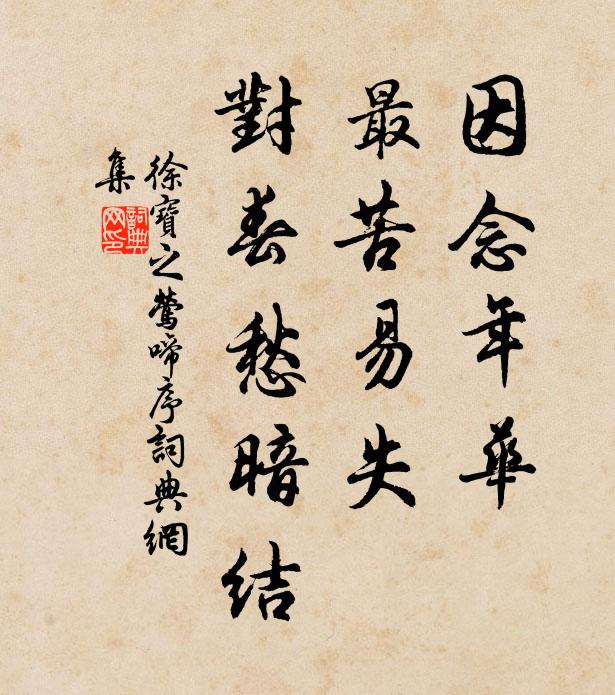 因念年華
最苦易失
對春愁暗結
徐寶之鶯啼序詞典網
集
詞典
网印